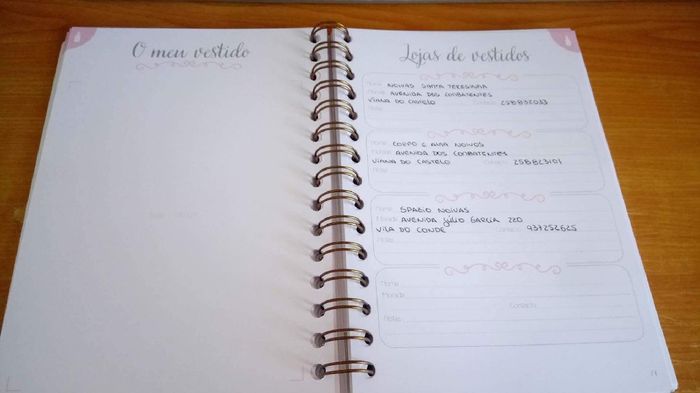 O meu vestido
Lojas de vestidos
Nome NOIVAS SANTA TERESINHA
Morada AVENIDA DOS COMBATENTES
VIANA DO CASTELO Contacto 258832033
Notas
Nome CORPO E ALMA NOIVOS
Morada AVENIDA DOS COMBATENTES
VIANA DO CASTELO Contacto 258823101
Notas
Nome SPAZIO NOIVAS
Morada AVENIDA JÚLIO GARCIA 220
VILA DO CONDE Contacto 937252625
Notas
Nome
Morada
Contacto
Notas